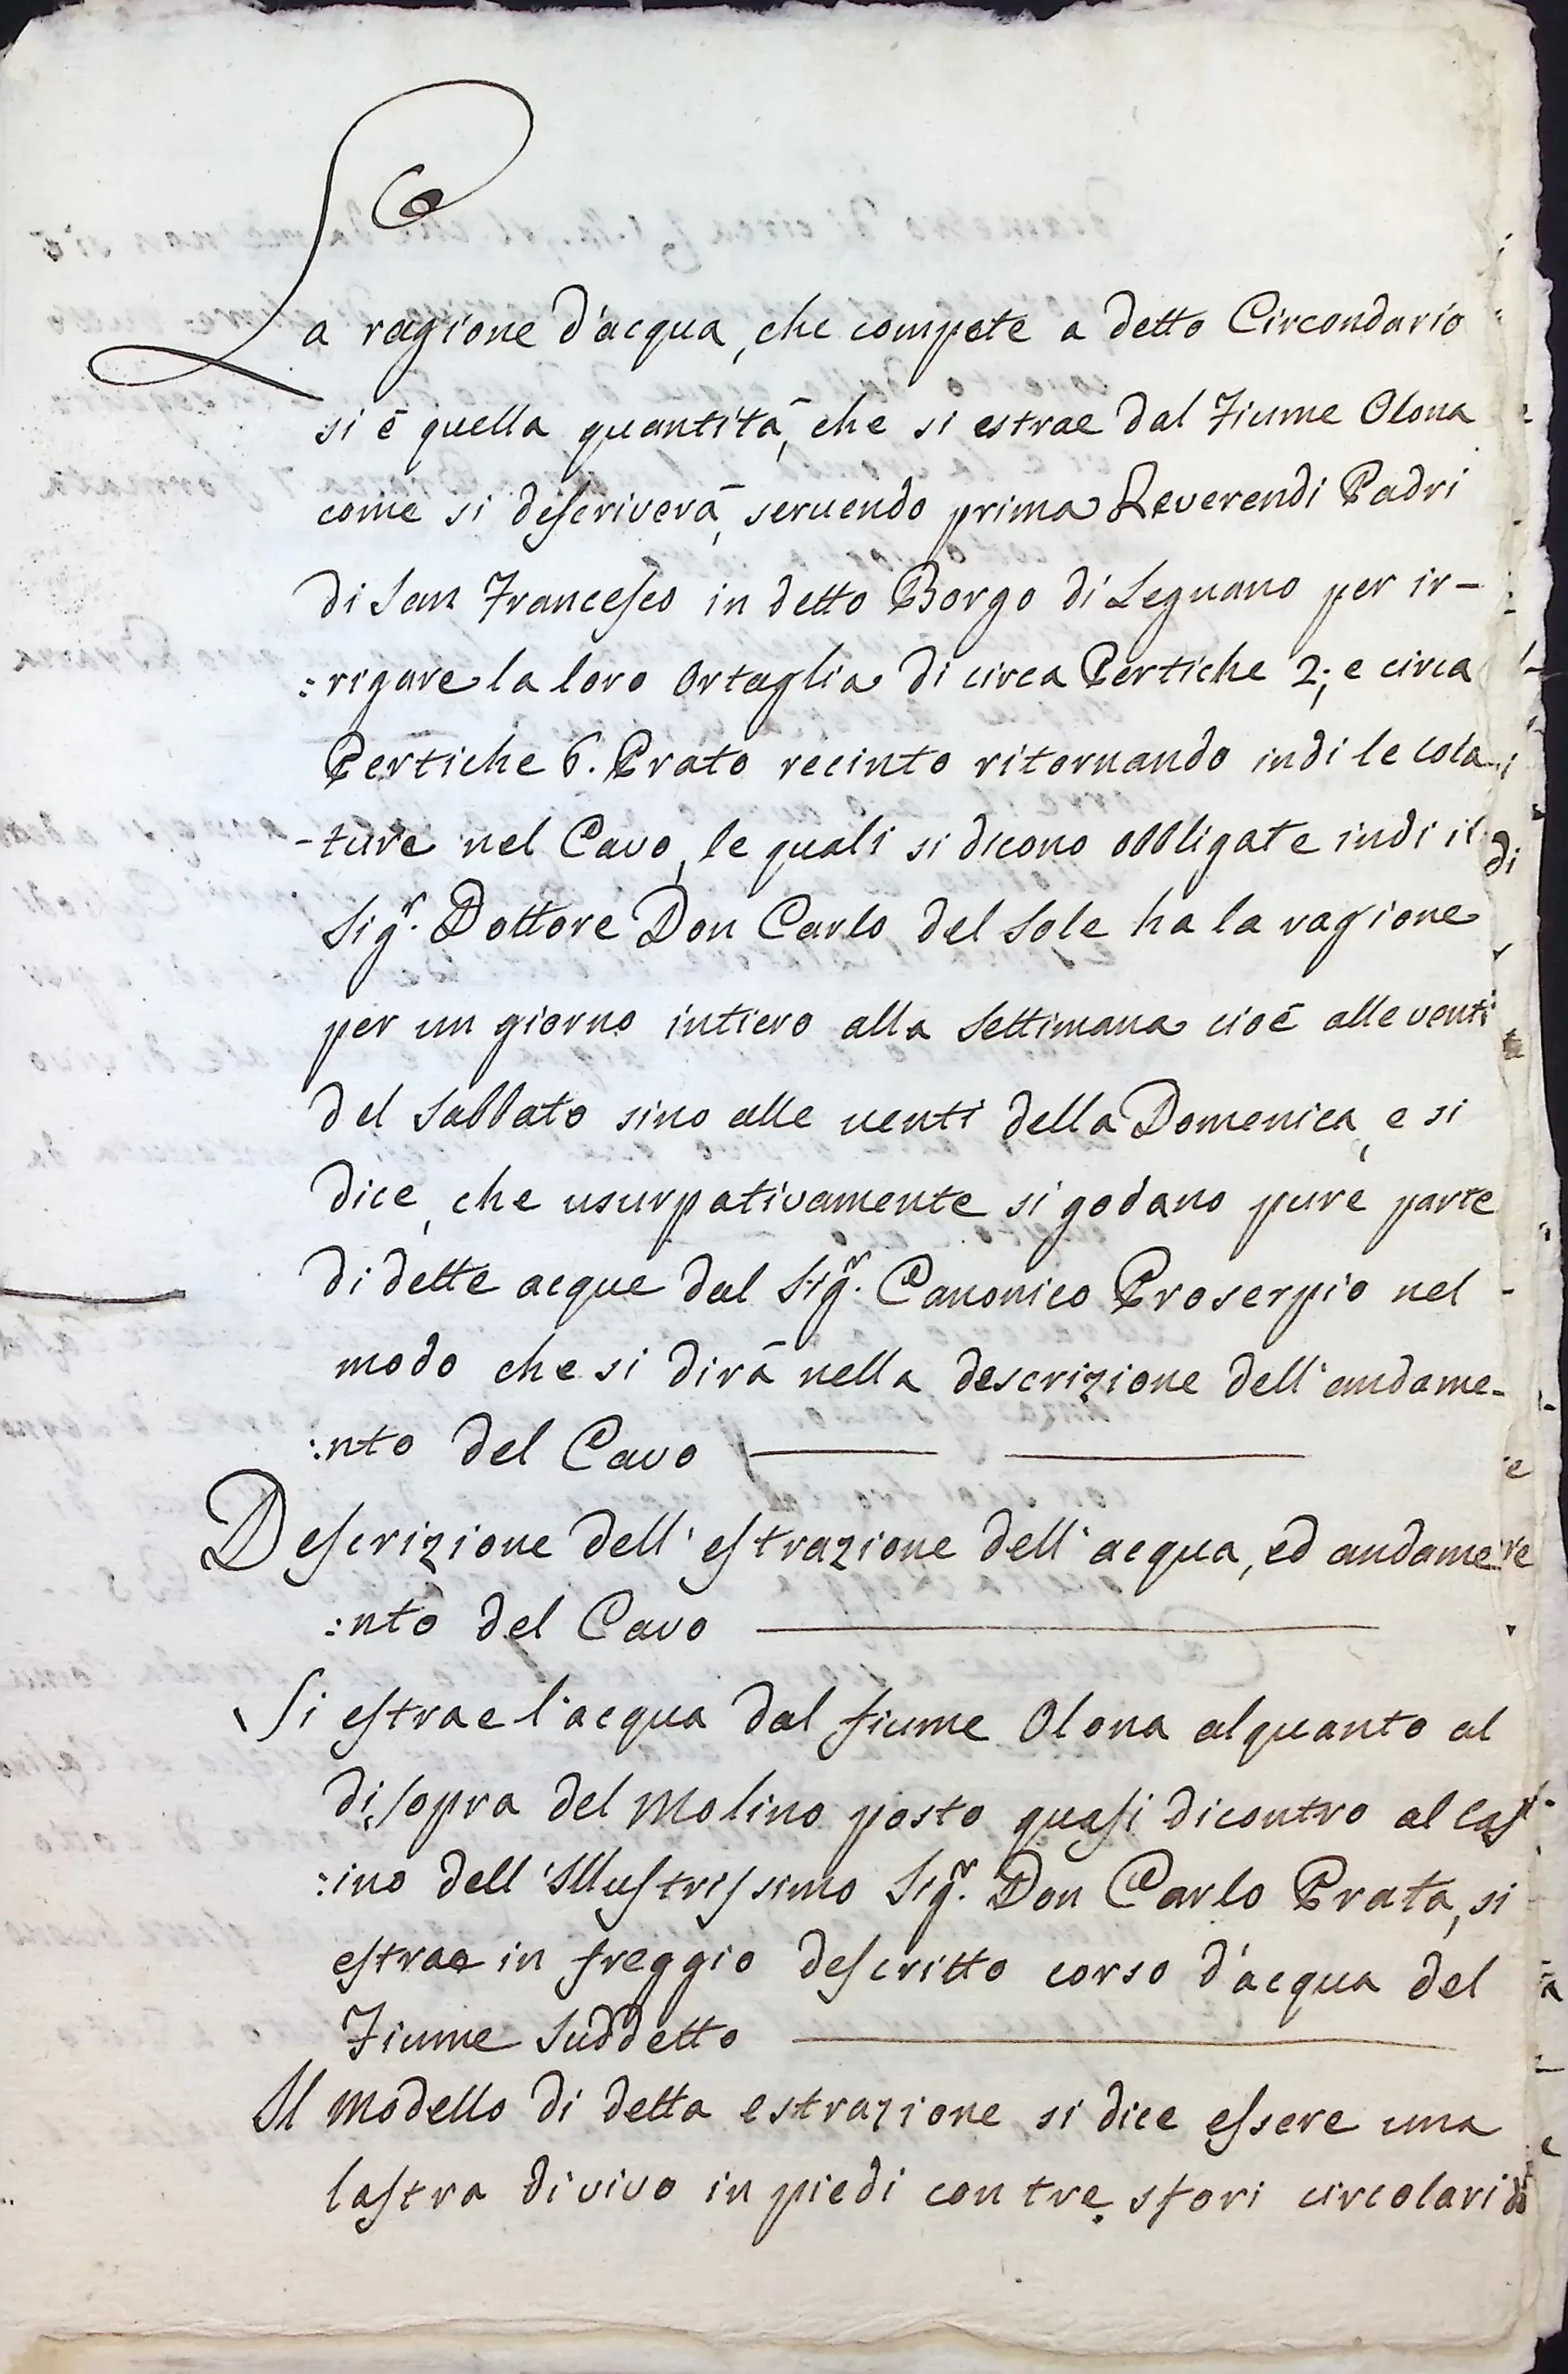 La ragione d'acqua, che compete a detto Circondario
si è quella quantità, che si estrae dal Fiume Olona
come si descriverà, seruendo prima Reverendi Padri
di San Francesco in detto Borgo di Legnano per ir-
:rigare la loro Ortaglia di circa Pertiche 2; e circa
Pertiche 6. Prato recinto ritornando indi le cola-
-ture nel Cavo, le quali si dicono obbligate indi il
Sigr. Dottore Don Carlo del Sole ha la ragione
per un giorno intiero alla Settimana cioè alle venti
del Sabbato sino alle uenti della Domenica, e si
dice, che usurpativamente si godano pure parte
di dette acque dal Sigr. Canonico Proserpio nel
modo che si dirà nella descrizione dell'andame-
:nto del Cavo
Descrizione dell'estrazione dell'acqua, ed andame
:nto del Cavo
Si estrae l'acqua dal fiume Olona alquanto al
disopra del Molino posto quasi dicontro al Cas
:ino dell'Illustrissimo Sigr. Don Carlo Prata, si
estrae in freggio descritto corso d'acqua del
Fiume Suddetto
Il Modello di detta estrazione si dice essere una
lastra di vivo in piedi con tre sfori circolari di